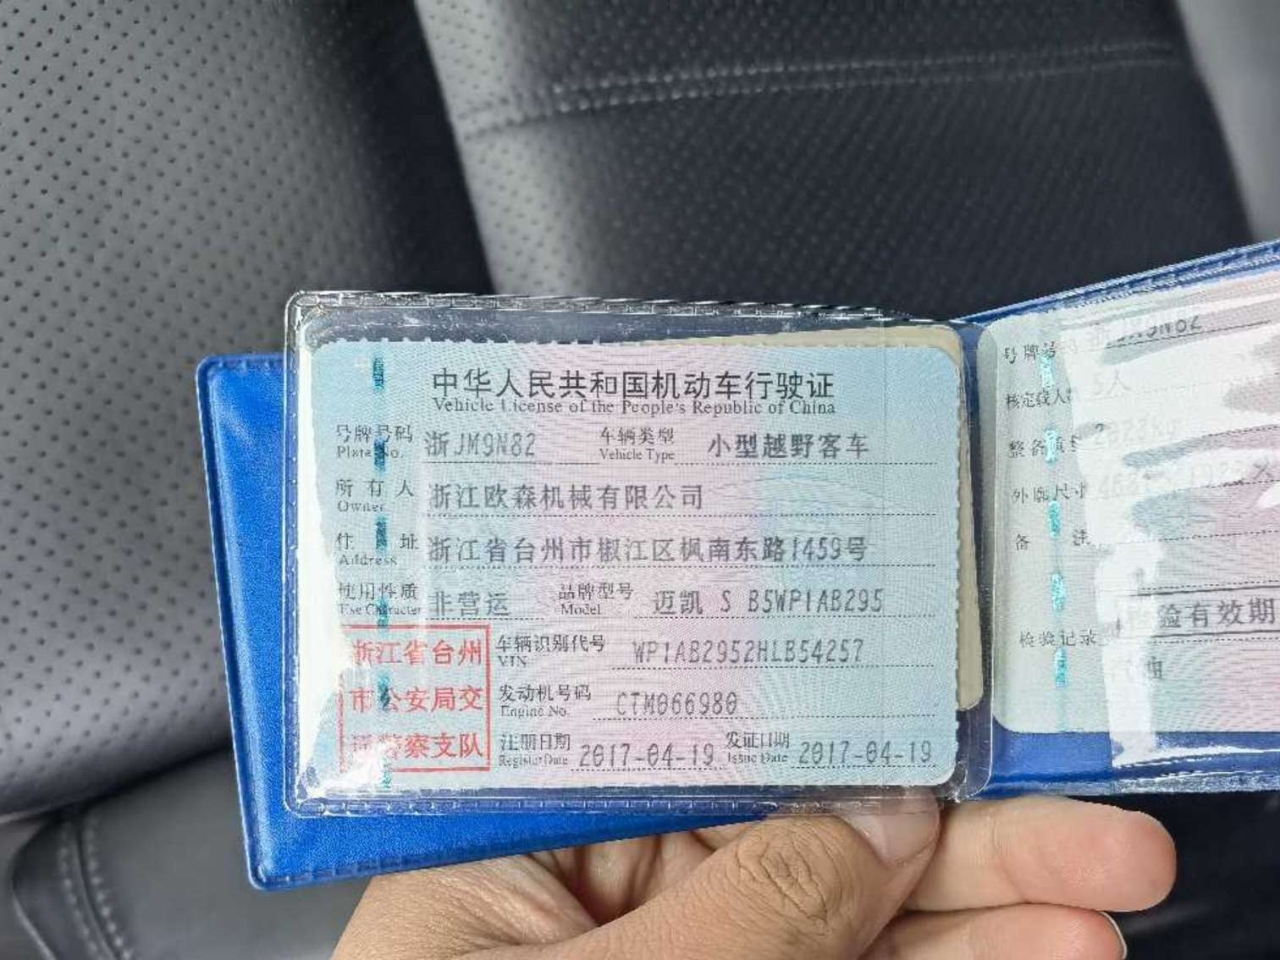 中华人民共和国机动车行驶证
Vehicle License of the People's Republic of China
号牌号码 浙JM9N82 车辆类型 小型越野客车
Plate No. Vehicle Type
所有人 浙江欧森机械有限公司
Owner
住址 浙江省台州市椒江区枫南东路1459号
Address
使用性质 非营运 品牌型号 迈凯 S B5WP1AB295
Use Character Model
浙江省台州
市公安局交
通警察支队
车辆识别代号 WP1AB2952HLB54257
VIN
发动机号码 CTM066980
Engine No.
注册日期 2017-04-19 发证日期 2017-04-19
Register Date Issue Date
号牌号码
核定载人数 5人
整备质量
外廓尺寸
备注
检验记录
检验有效期